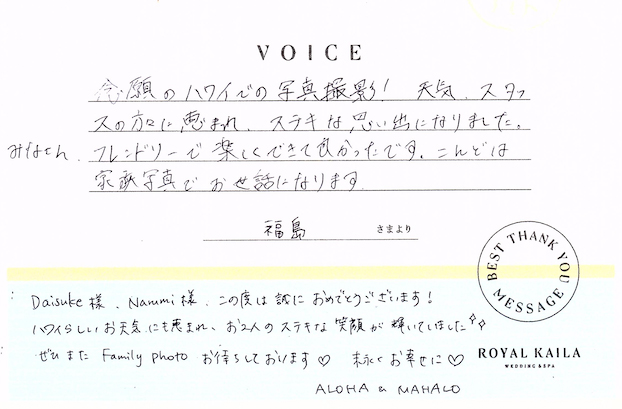 VOICE
念願のハワイでの写真撮影! 天気、スタッ
フの方々に恵まれ、ステキな思い出になりました。
みなさん、フレンドリーで楽しくできて良かったです。こんどは
家族写真でお世話になります
福島 さまより
BEST THANK YOU MESSAGE
Daisuke様、Narumi様、この度は誠におめでとうございます!
ハワイらしいお天気にも恵まれ、お2人のステキな笑顔が輝いていました
ぜひまた Family photo お待ちしております♡ 末永くお幸せに♡
ROYAL KAILA
WEDDING & SPA
ALOHA & MAHALO